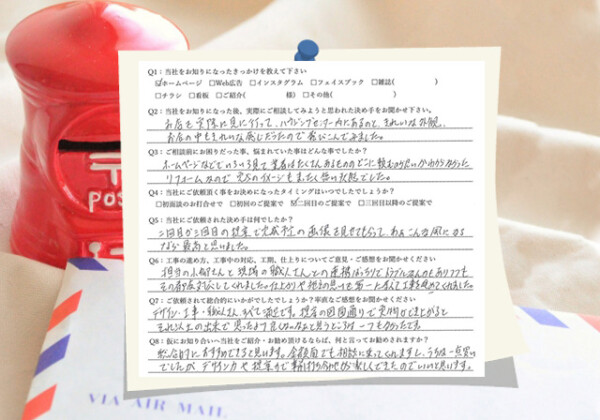 Q1：当社をお知りになったきっかけを教えて下さい
☑ホームページ □Web広告 □インスタグラム □フェイスブック □雑誌( )
□チラシ □看板 □ご紹介( 様) □その他( )
Q2：当社をお知りになった後、実際にご相談してみようと思われた決め手をお聞かせ下さい。
お店を実際に見に行って、ハウジングセンター内にあるのと、きれいな外観、
お店の中もきれいな感じだったので飛びこんでみました。
Q3：ご相談前にお困りだった事、悩まれていた事はどんな事でしたか？
ホームページなどでいろいろ見て業者はたくさんあるもののどこに頼むか良いかわからなかった
リフォームなので完成のイメージもまったく無い状態でした。
Q4：当社にご依頼頂く事をお決めになったタイミングはいつでしたでしょうか？
□初面談のお打合せで □初回のご提案で ☑二回目のご提案で □三回目以降のご提案で
Q5：当社にご依頼された決め手は何でしたか？
二回目か三回目の提案で完成予定の画像を見せてもらって、あぁこんな風になる
なら最高と思いました。
Q6：工事の進め方、工事中の対応、工期、仕上りについてご意見・ご感想をお聞かせください
担当の さんと現場の職人さんとの連携ばっちりで
その都度対応してくれました。仕上がりや
Q7：ご依頼されて総合的にいかがでしたでしょうか？率直なご感想をお聞かせください
デザイン・工事・職人さん すべて満足です。提案の図面通りで実物ができあがると
それ以上の出来で思ったより良くないなと思うところが一つもなかったです。
Q8：仮にお知り合いへ当社をご紹介・お勧め頂けるならば、何と言ってお勧めされますか？
総合的におすすめできると思います。金額面でも相談に乗ってくれますし、うちは一点買い
でしたが デザイン力や提案力で 楽しくできたのでいいと思います。
POS
VIA AIR MAIL